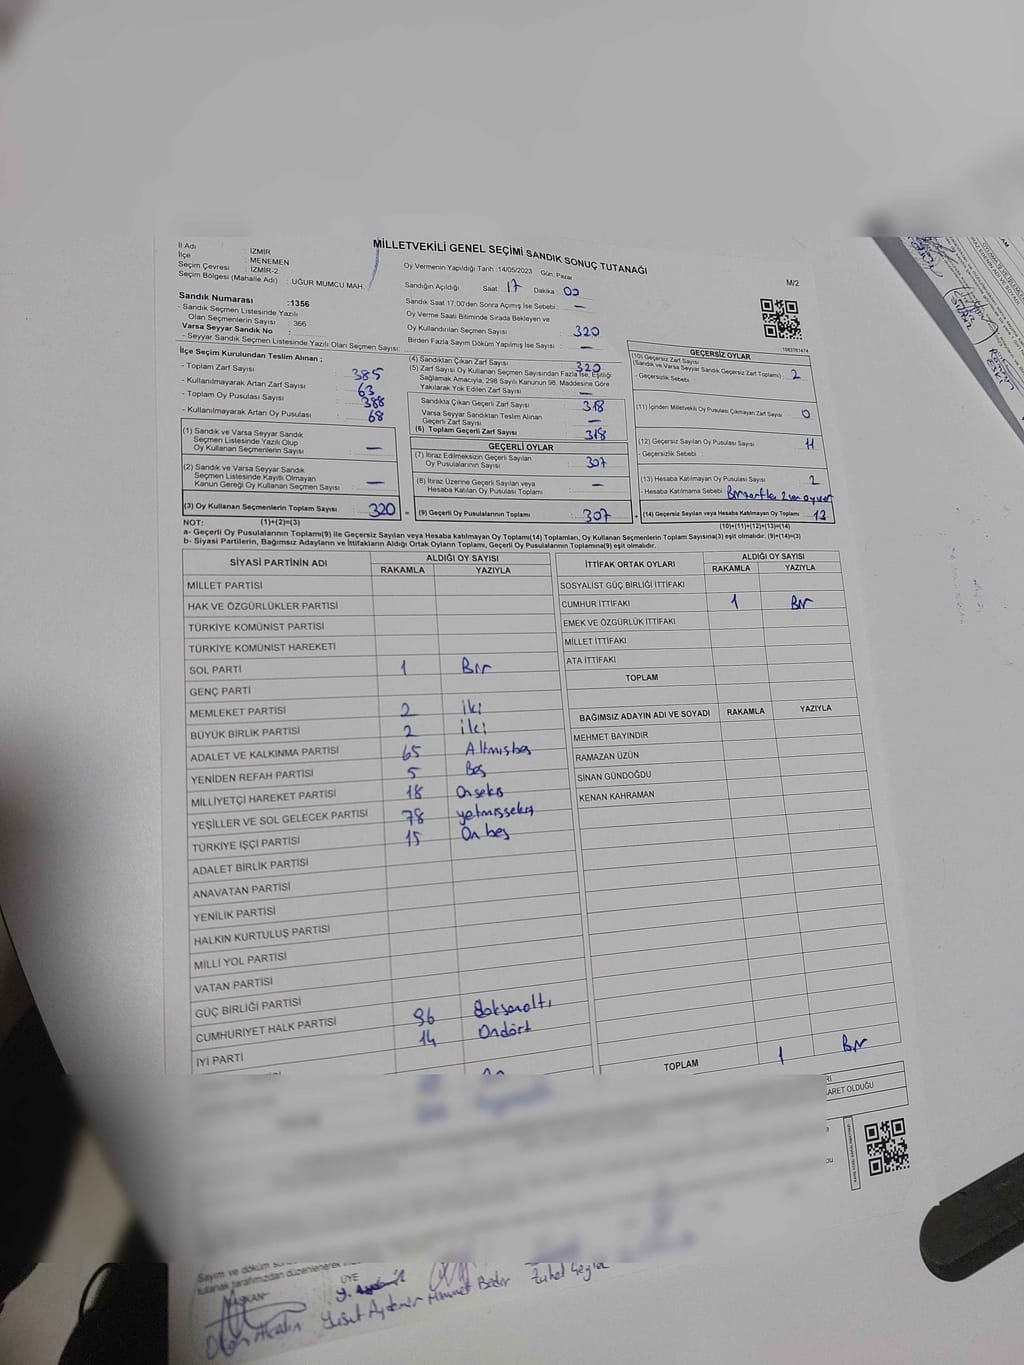 MİLLETVEKİLİ GENEL SEÇİMİ SANDIK SONUÇ TUTANAĞI
İl Adı : İZMİR
İlçe : MENEMEN
Seçim Çevresi : İZMİR-2
Seçim Bölgesi (Mahalle Adı) : UĞUR MUMCU MAH.
Sandık Numarası : 1356
- Sandık Seçmen Listesinde Yazılı
Olan Seçmenlerin Sayısı : 366
Varsa Seyyar Sandık No :
- Seyyar Sandık Seçmen Listesinde Yazılı Olan Seçmen Sayısı:
Oy Vermenin Yapıldığı Tarih :14/05/2023 Gün: Pazar
Sandığın Açıldığı Saat: 17 Dakika: 00
Sandık Saat 17.00'den Sonra Açılmış İse Sebebi : —
Oy Verme Saati Bitiminde Sırada Bekleyen ve
Oy Kullandırılan Seçmen Sayısı : 320
Birden Fazla Sayım Döküm Yapılmış İse Sayısı : —
M/2
İlçe Seçim Kurulundan Teslim Alınan ;
- Toplam Zarf Sayısı : 385
- Kullanılmayarak Artan Zarf Sayısı : 63
- Toplam Oy Pusulası Sayısı : 388
- Kullanılmayarak Artan Oy Pusulası : 68
(1) Sandık ve Varsa Seyyar Sandık
Seçmen Listesinde Yazılı Olup
Oy Kullanan Seçmenlerin Sayısı : —
(2) Sandık ve Varsa Seyyar Sandık
Seçmen Listesinde Kayıtlı Olmayan
Kanun Gereği Oy Kullanan Seçmen Sayısı : —
(3) Oy Kullanan Seçmenlerin Toplam Sayısı : 320
(1)+(2)=(3)
(4) Sandıktan Çıkan Zarf Sayısı : 320
(5) Zarf Sayısı Oy Kullanan Seçmen Sayısından Fazla İse, Eşitliği
Sağlamak Amacıyla, 298 Sayılı Kanunun 98. Maddesine Göre
Yakılarak Yok Edilen Zarf Sayısı : —
Sandıkta Çıkan Geçerli Zarf Sayısı : 318
Varsa Seyyar Sandıktan Teslim Alınan
Geçerli Zarf Sayısı : —
(6) Toplam Geçerli Zarf Sayısı : 318
GEÇERLİ OYLAR
(7) İtiraz Edilmeksizin Geçerli Sayılan
Oy Pusulalarının Sayısı : 307
(8) İtiraz Üzerine Geçerli Sayılan veya
Hesaba Katılan Oy Pusulası Toplamı : —
(9) Geçerli Oy Pusulalarının Toplamı : 307
GEÇERSİZ OYLAR
(10) Geçersiz Zarf Sayısı
(Sandık ve Varsa Seyyar Sandık Geçersiz Zarf Toplamı) : 2
- Geçersizlik Sebebi
(11) İçinden Milletvekili Oy Pusulası Çıkmayan Zarf Sayısı : 0
(12) Geçersiz Sayılan Oy Pusulası Sayısı : 11
- Geçersizlik Sebebi
(13) Hesaba Katılmayan Oy Pusulası Sayısı : 2
- Hesaba Katılmama Sebebi :
(14) Geçersiz Sayılan veya Hesaba Katılmayan Oy Toplamı : 13
(10)+(11)+(12)+(13)=(14)
NOT:
a- Geçerli Oy Pusulalarının Toplamı(9) ile Geçersiz Sayılan veya Hesaba katılmayan Oy Toplamı(14) Toplamları, Oy Kullanan Seçmenlerin Toplam Sayısına(3) eşit olmalıdır. (9)+(14)=(3)
b- Siyasi Partilerin, Bağımsız Adayların ve İttifakların Aldığı Ortak Oyların Toplamı, Geçerli Oy Pusulalarının Toplamına(9) eşit olmalıdır.
SİYASİ PARTİNİN ADI ALDIĞI OY SAYISI
RAKAMLA YAZIYLA
MİLLET PARTİSİ
HAK VE ÖZGÜRLÜKLER PARTİSİ
TÜRKİYE KOMÜNİST PARTİSİ
TÜRKİYE KOMÜNİST HAREKETİ
SOL PARTİ 1 Bir
GENÇ PARTİ
MEMLEKET PARTİSİ 2 iki
BÜYÜK BİRLİK PARTİSİ 2 iki
ADALET VE KALKINMA PARTİSİ 65 Altmışbeş
YENİDEN REFAH PARTİSİ 5 Beş
MİLLİYETÇİ HAREKET PARTİSİ 18 Onsekiz
YEŞİLLER VE SOL GELECEK PARTİSİ 78 yetmişsekiz
TÜRKİYE İŞÇİ PARTİSİ 15 On beş
ADALET BİRLİK PARTİSİ
ANAVATAN PARTİSİ
YENİLİK PARTİSİ
HALKIN KURTULUŞ PARTİSİ
MİLLİ YOL PARTİSİ
VATAN PARTİSİ
GÜÇ BİRLİĞİ PARTİSİ
CUMHURİYET HALK PARTİSİ 96 Doksanaltı
İYİ PARTİ 14 Ondört
İTTİFAK ORTAK OYLARI ALDIĞI OY SAYISI
RAKAMLA YAZIYLA
SOSYALİST GÜÇ BİRLİĞİ İTTİFAKI
CUMHUR İTTİFAKI 1 Bir
EMEK VE ÖZGÜRLÜK İTTİFAKI
MİLLET İTTİFAKI
ATA İTTİFAKI
TOPLAM
BAĞIMSIZ ADAYIN ADI VE SOYADI RAKAMLA YAZIYLA
MEHMET BAYINDIR
RAMAZAN ÜZÜN
SİNAN GÜNDOĞDU
KENAN KAHRAMAN
TOPLAM 1 Bir
ARET OLDUĞU
Sayım ve döküm
tutanak tarafımızdan düzenlenerek
BAŞKAN
ÜYE
Yusuf Aydemir